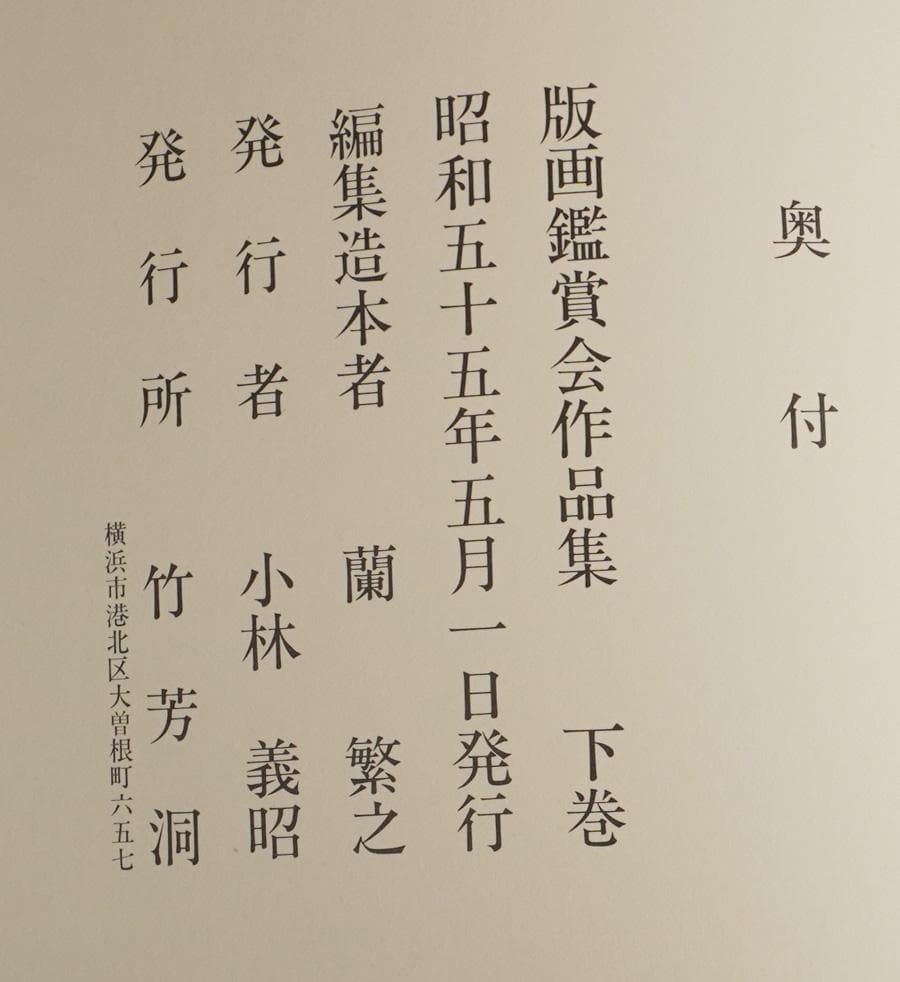 奥付
版画鑑賞会作品集 下巻
昭和五十五年五月一日発行
編集造本者 蘭 繁之
発行者 小林 義昭
発行所 竹芳洞
横浜市港北区大曽根町六五七